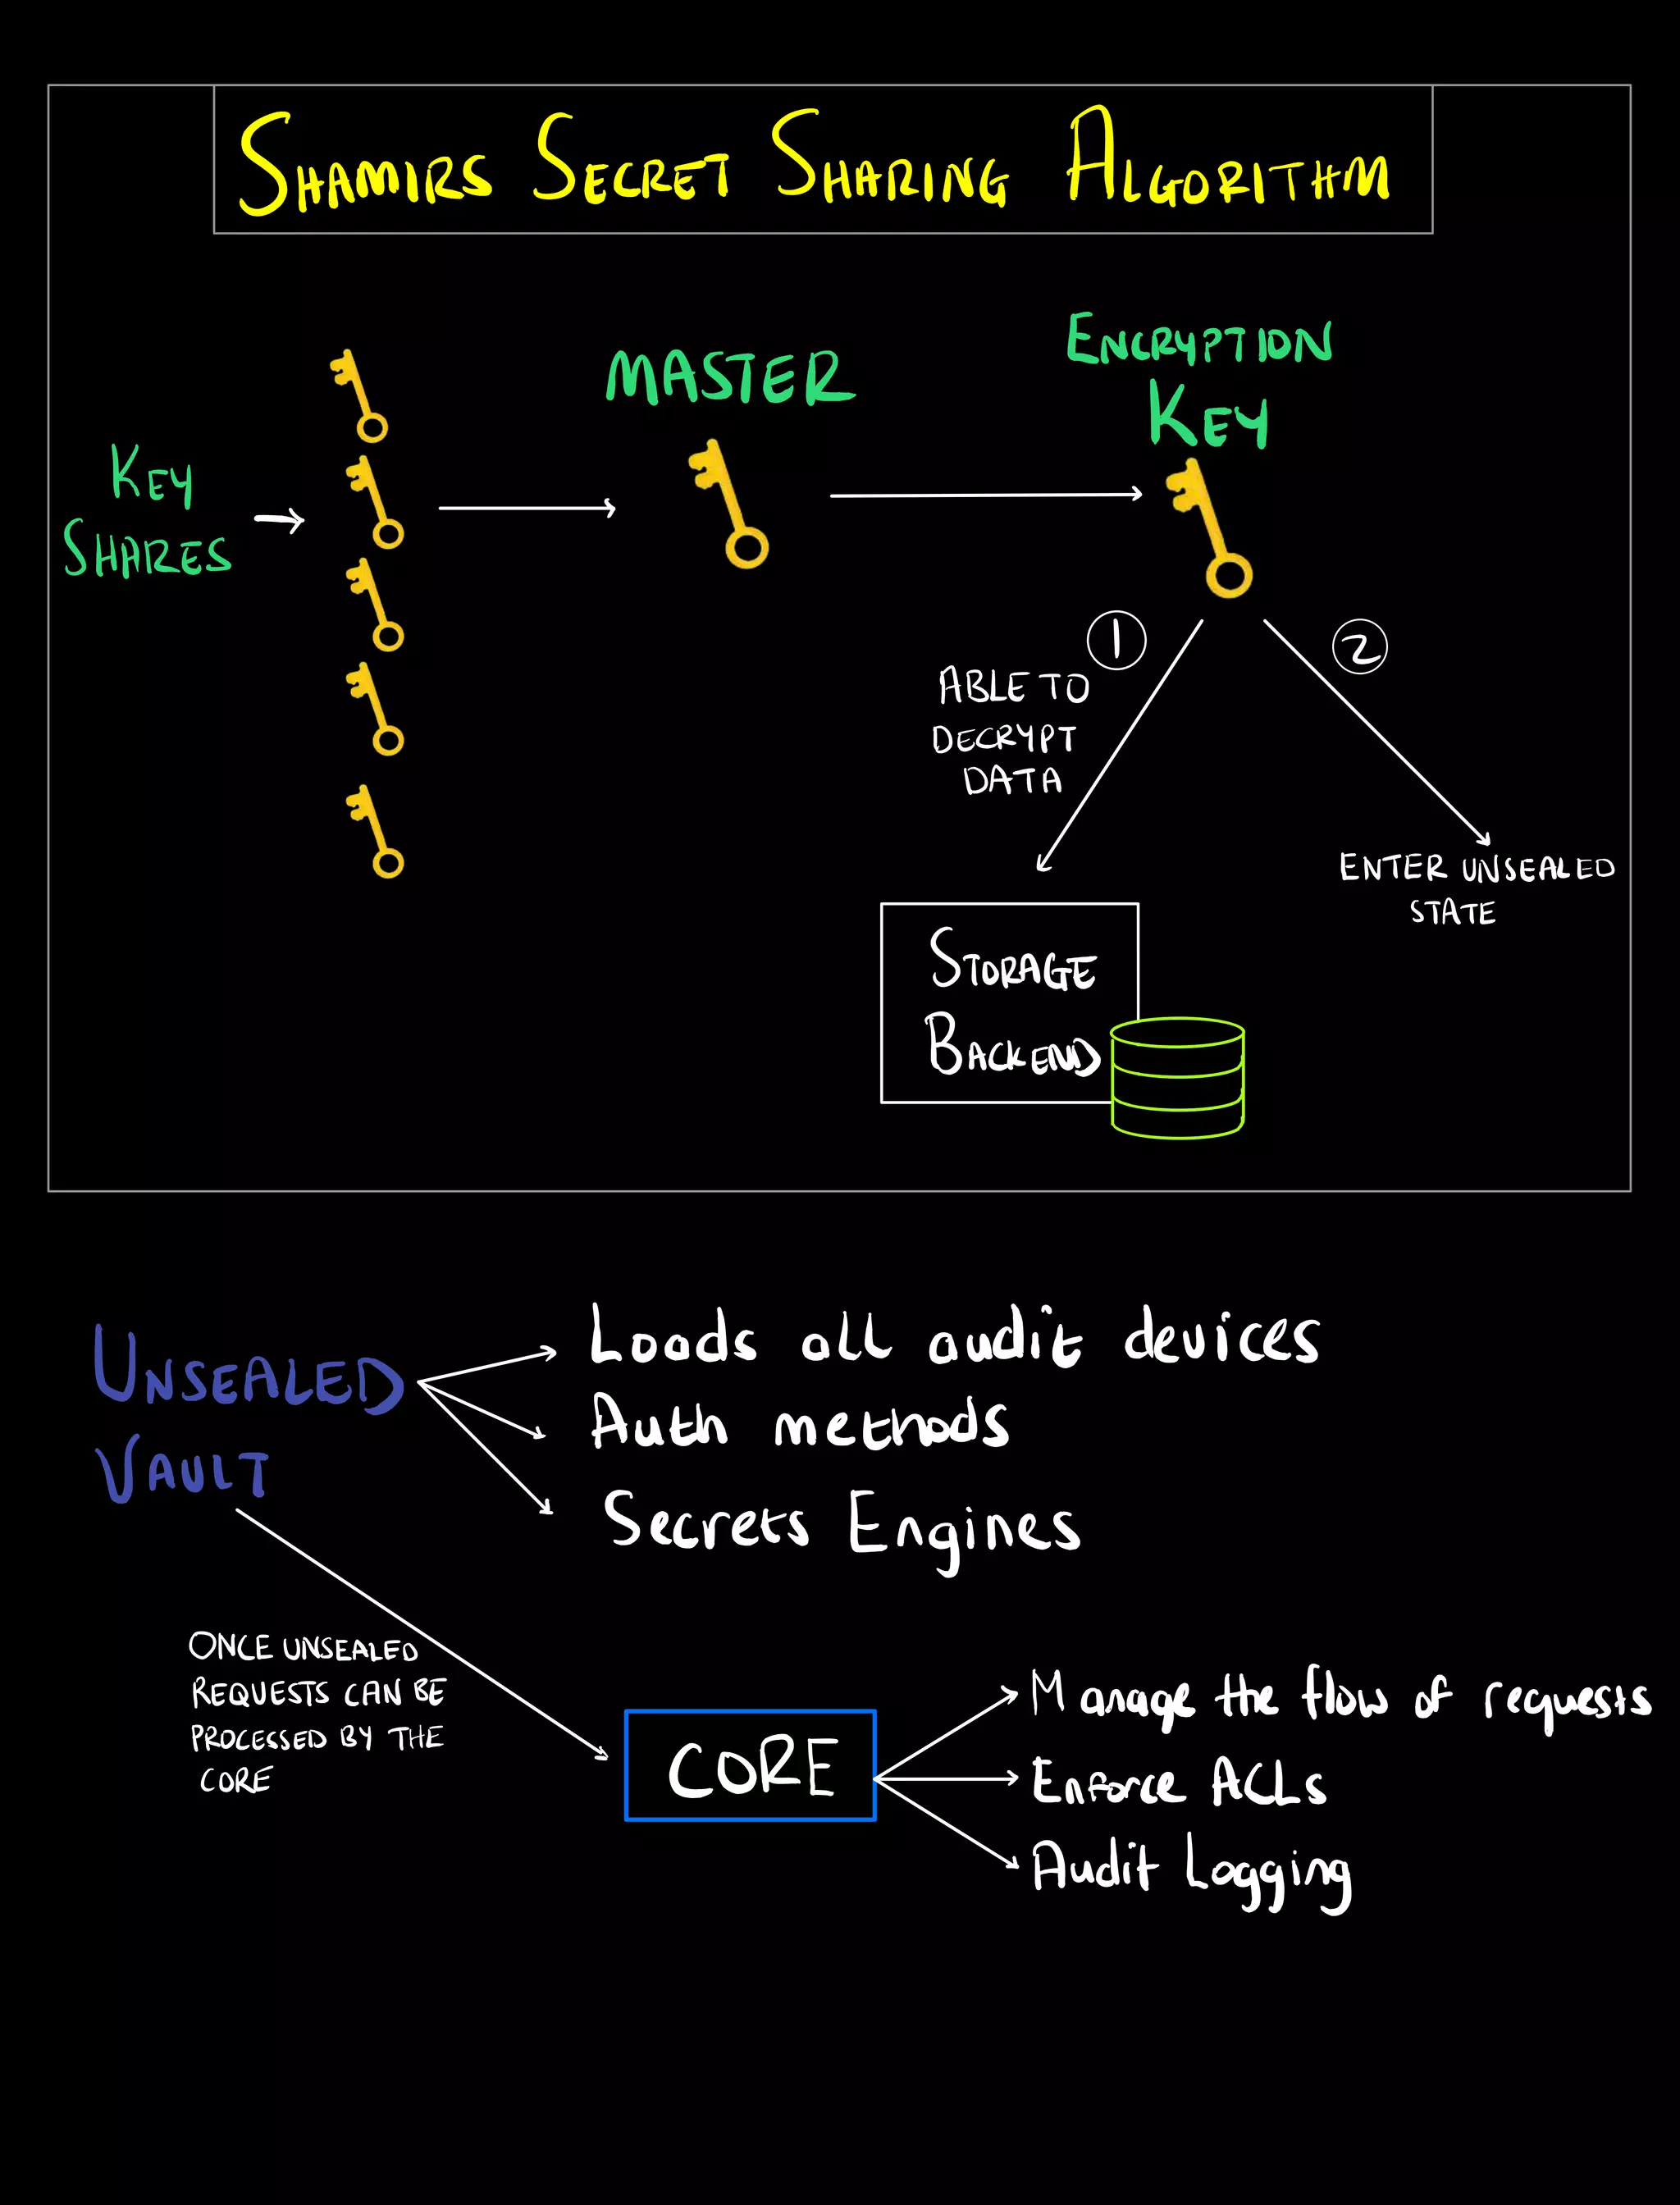 SHAMIRS SECRET SHARING ALGORITHM
KEY
SHARES
MASTER
ENCRYPTION
KEY
1
ABLE TO
DECRYPT
DATA
2
ENTER UNSEALED
STATE
STORAGE
BACKEND
UNSEALED
VAULT
Loads all audit devices
Auth methods
Secrets Engines
ONCE UNSEALED
REQUESTS CAN BE
PROCESSED BY THE
CORE
CORE
Manage the flow of requests
Enforce ACLs
Audit Logging